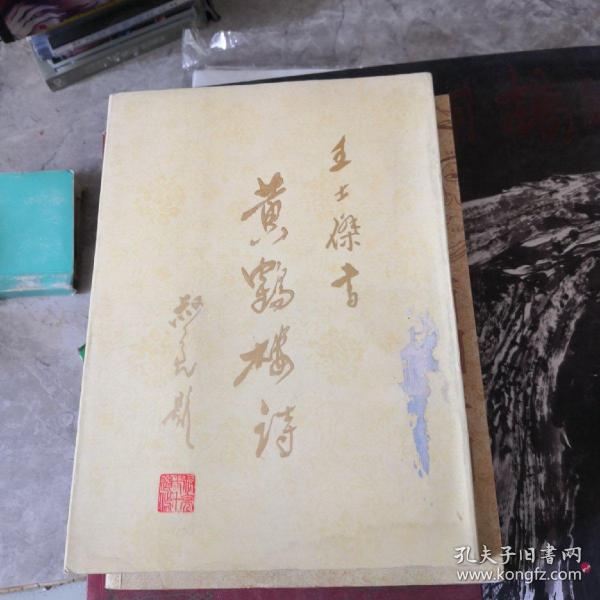 王士傑书
黄鹤楼诗
叔亮题
孔夫子旧书网
www.kongfz.com